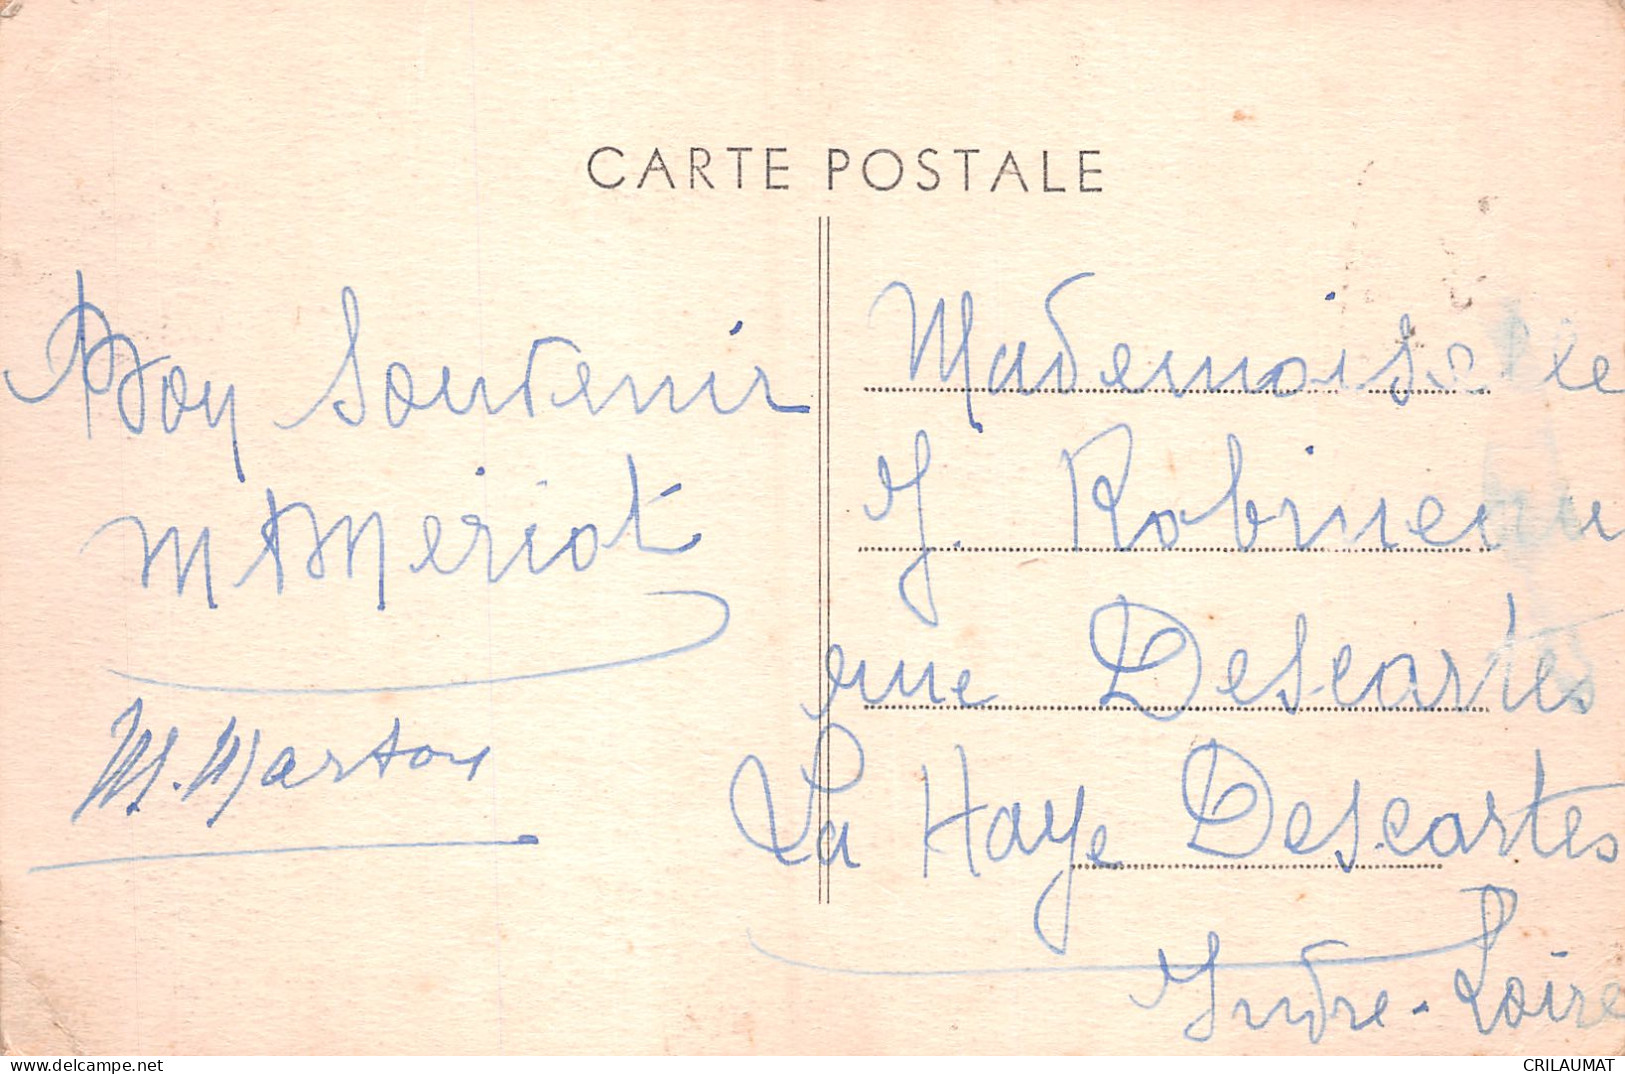 CARTE POSTALE
Bon Souvenir
Meriot
M. Marton
Mademoiselle
J. Robineau
rue Descartes
La Haye Descartes
Indre-Loire
www.delcampe.net
CRILAUMAT